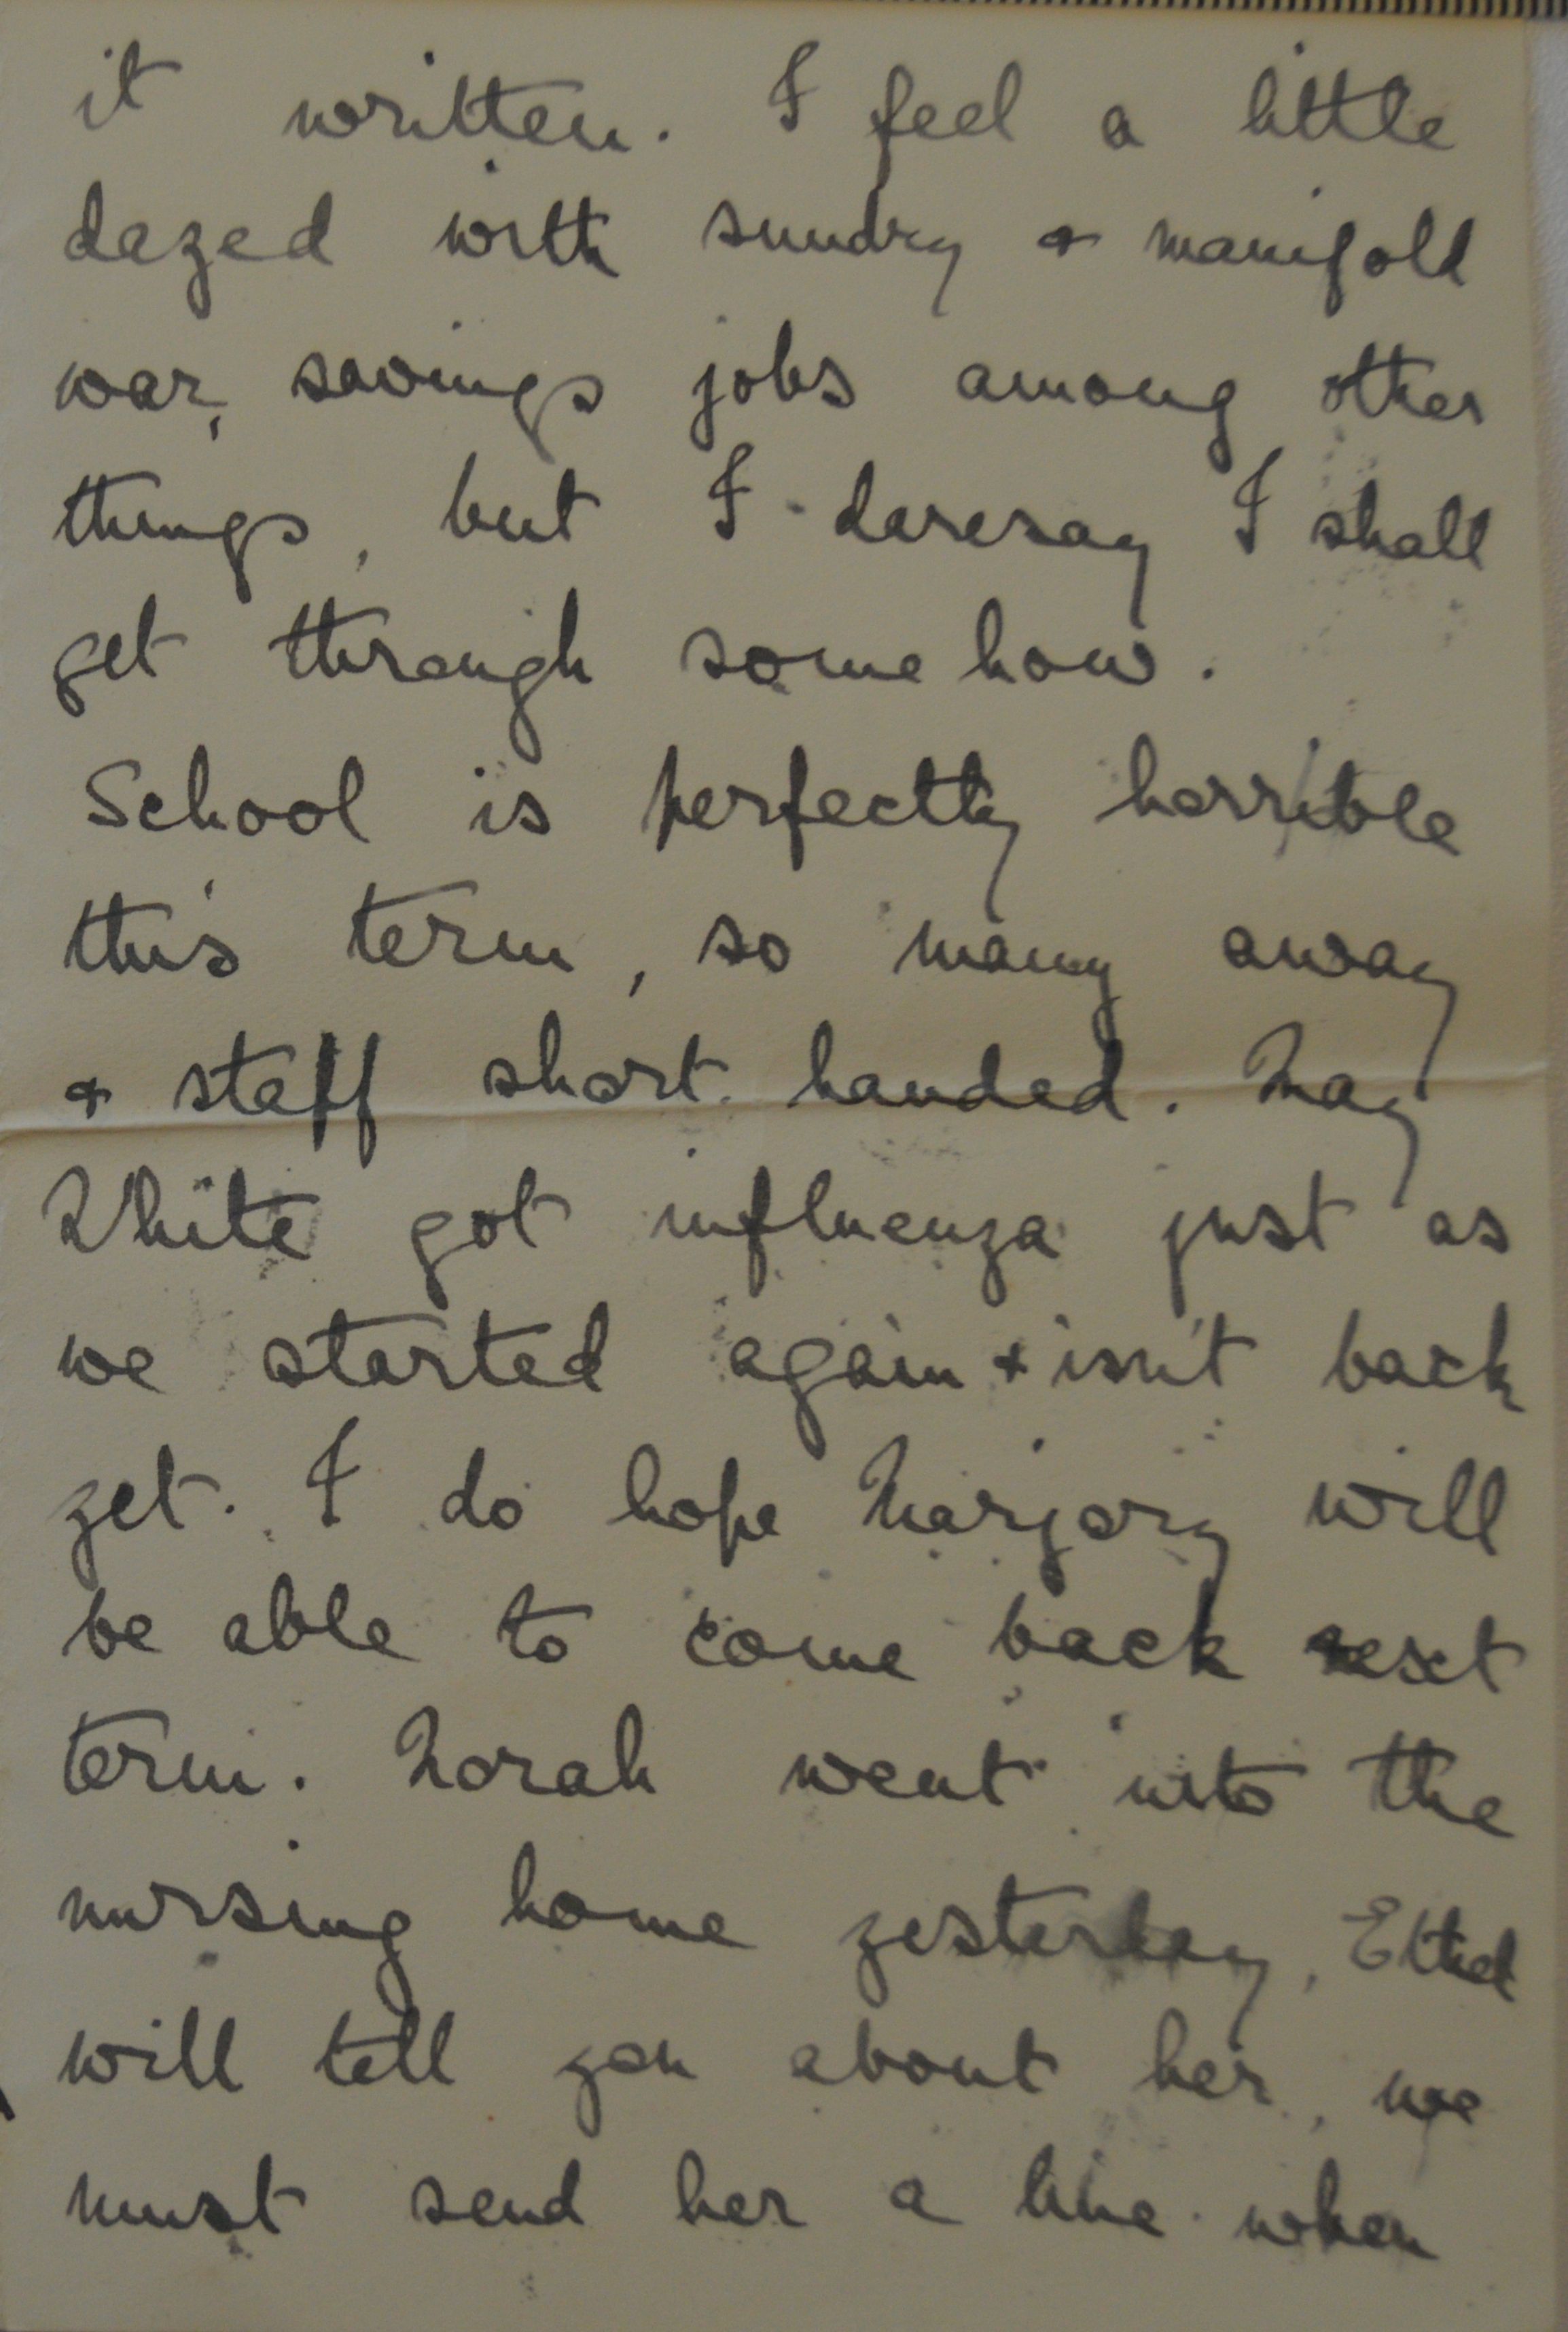 it written. I feel a little
dazed with sundry & manifold
war, savings jobs among other
things, but I daresay I shall
get through somehow.
School is perfectly horrible
this term, so many away
& staff short handed. May
White got influenza just as
we started again & isn't back
yet. I do hope Marjory will
be able to come back next
term. Norah went into the
nursing home yesterday, Ethel
will tell you about her, we
must send her a line when